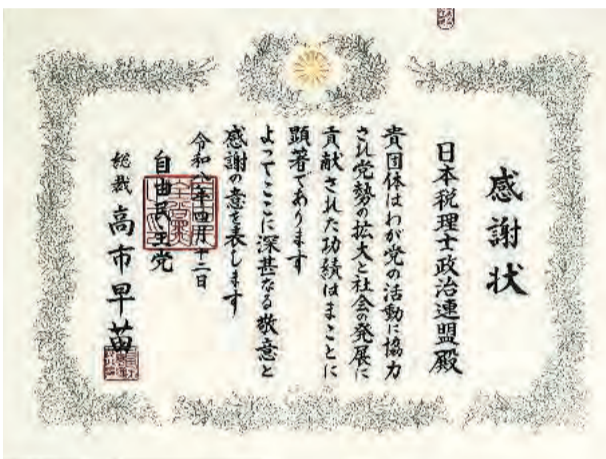 感謝状
日本税理士政治連盟殿
貴団体はわが党の活動に協力
され党勢の拡大と社会の発展に
貢献された功績はまことに
顕著であります
よってここに深甚なる敬意と
感謝の意を表します
令和八年四月十二日
自由民主党
総裁 高市早苗